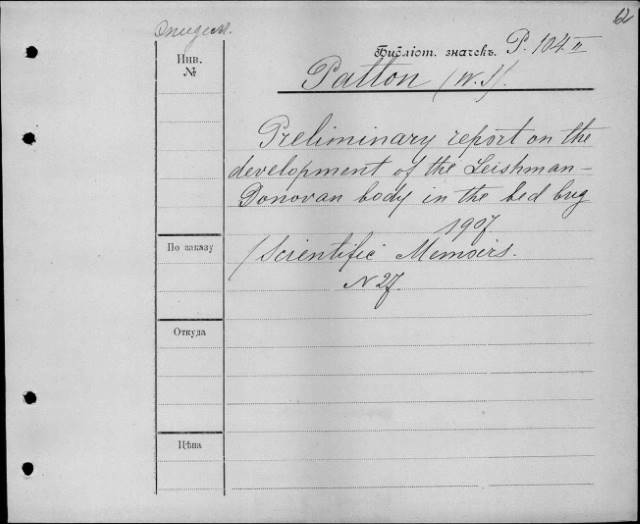 62
Эпидем.
Инв.
№
Библіот. значекъ. P. 104 II
Patton (W. S).
Preliminary report on the
development of the Leishman-
Donovan body in the bed bug
1907
По заказу
(Scientific Memoirs.
N 27.
Откуда
Цѣна